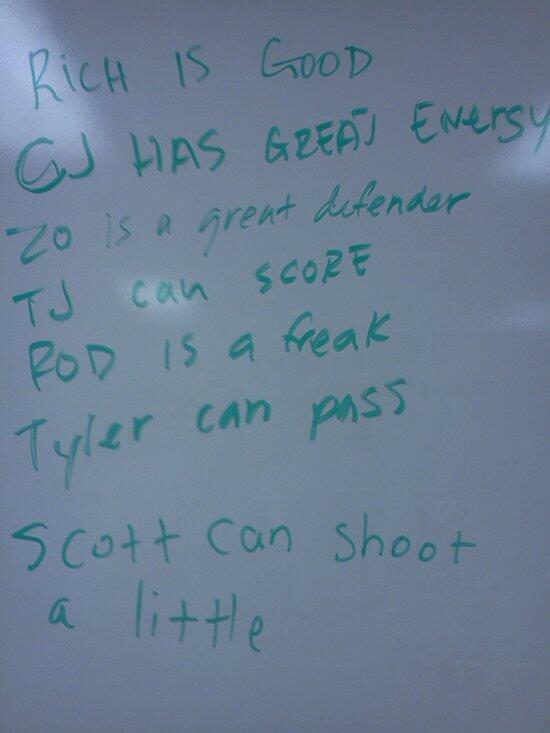 RiCH IS GOOD
CJ HAS GREAT ENERGY
ZO is a great defender
TJ can SCORE
ROD IS a freak
Tyler can pass
Scott can shoot
a little